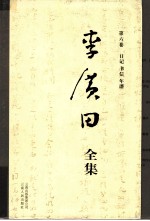 第六卷 日记 书信 年谱
李广田
全集